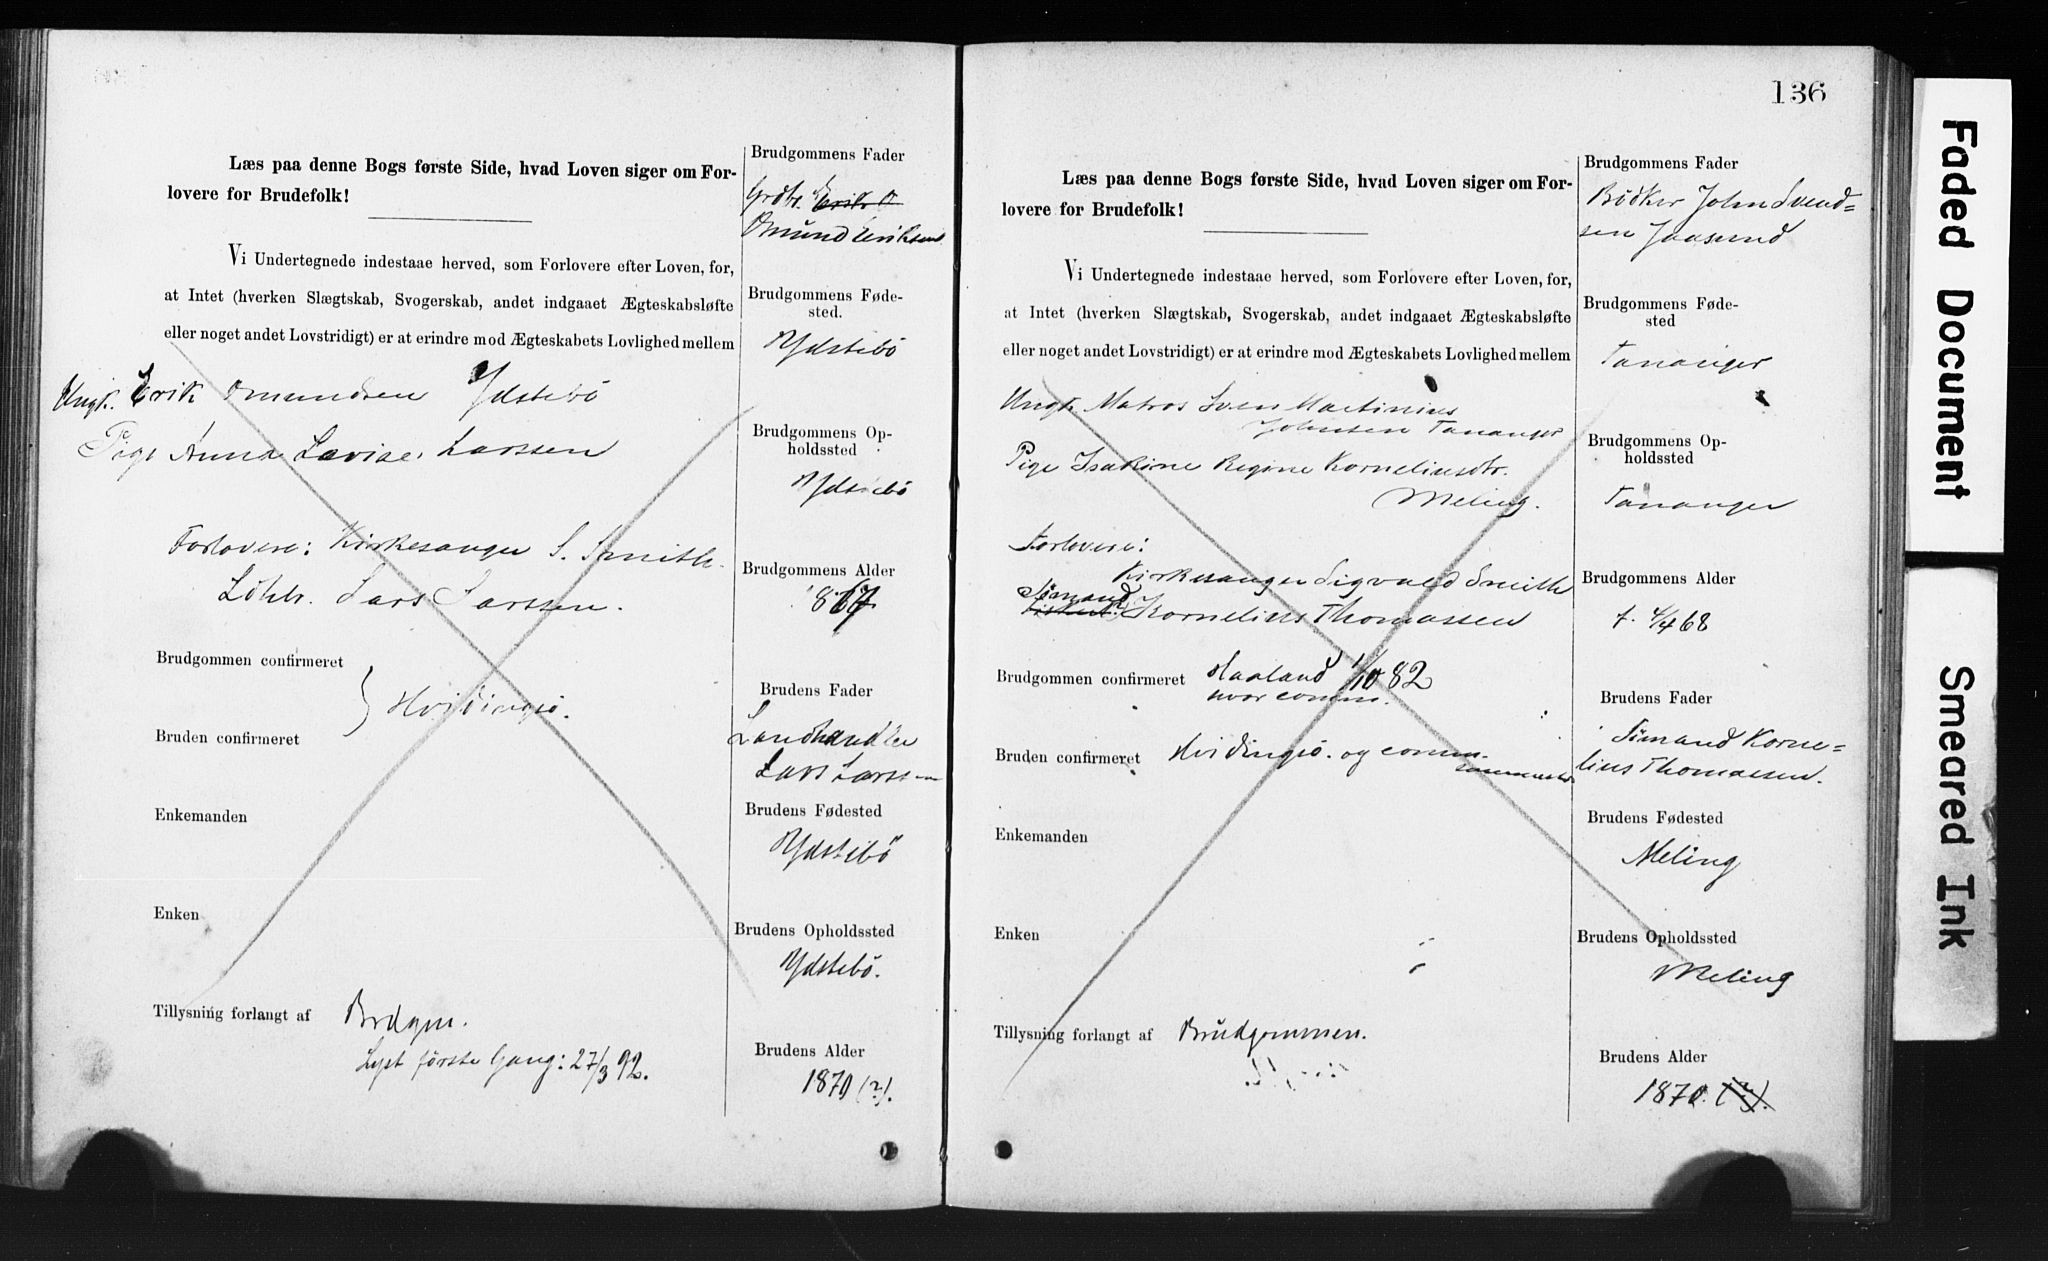 Læs paa denne Bogs første Side, hvad Loven siger om For-
lovere for Brudefolk!
Vi Undertegnede indestaae herved, som Forlovere efter Loven, for,
at Intet (hverken Slægtskab, Svogerskab, andet indgaaet Ægteskabsløfte
eller noget andet Lovstridigt) er at erindre mod Ægteskabets Lovlighed mellem
Ungk. Erik Omundsen Ydstebö
Pige Anna Lovise Larssen
Forlovere: Kirkesanger S. Smith.
Ldhlr. Lars Larssen.
Brudgommen confirmeret
Hvidingsö.
Bruden confirmeret
Enkemanden
Enken
Tillysning forlangt af Brdgm.
Lyst förste Gang: 27/3 92.
Brudgommens Fader
Grdbr. Erik O
Omund Eriksen
Brudgommens Føde-
sted.
Ydstebö
Brudgommens Op-
holdssted
Ydstebö
Brudgommens Alder
1867
Brudens Fader
Landhandler
Lars Larssen
Brudens Fødested
Ydstebö
Brudens Opholdssted
Ydstebö.
Brudens Alder
1870 (?).
136
Læs paa denne Bogs første Side, hvad Loven siger om For-
lovere for Brudefolk!
Vi Undertegnede indestaae herved, som Forlovere efter Loven, for,
at Intet (hverken Slægtskab, Svogerskab, andet indgaaet Ægteskabsløfte
eller noget andet Lovstridigt) er at erindre mod Ægteskabets Lovlighed mellem
Ungk. Matros Sven Martinius
Johnsen Tananger
Pige Isakine Regine Korneliusdtr.
Meling.
Forlovere:
Kirkesanger Sigvald Smith
Sömand
Kornelius Thomassen
Brudgommen confirmeret Haaland 1/10 82
hvor comm.
Bruden confirmeret Hvidingsö. og comm.
sammested
Enkemanden
Enken
Tillysning forlangt af Brudgommen.
Brudgommens Fader
Bödker John Svend=
sen Jaasund
Brudgommens Føde-
sted
Tananger
Brudgommens Op-
holdssted
Tananger
Brudgommens Alder
f. 4/4 68
Brudens Fader
Sömand Korne=
lius Thomassen.
Brudens Fødested
Meling
Brudens Opholdssted
Meling
Brudens Alder
1870. (?).
Faded Document
Smeared Ink